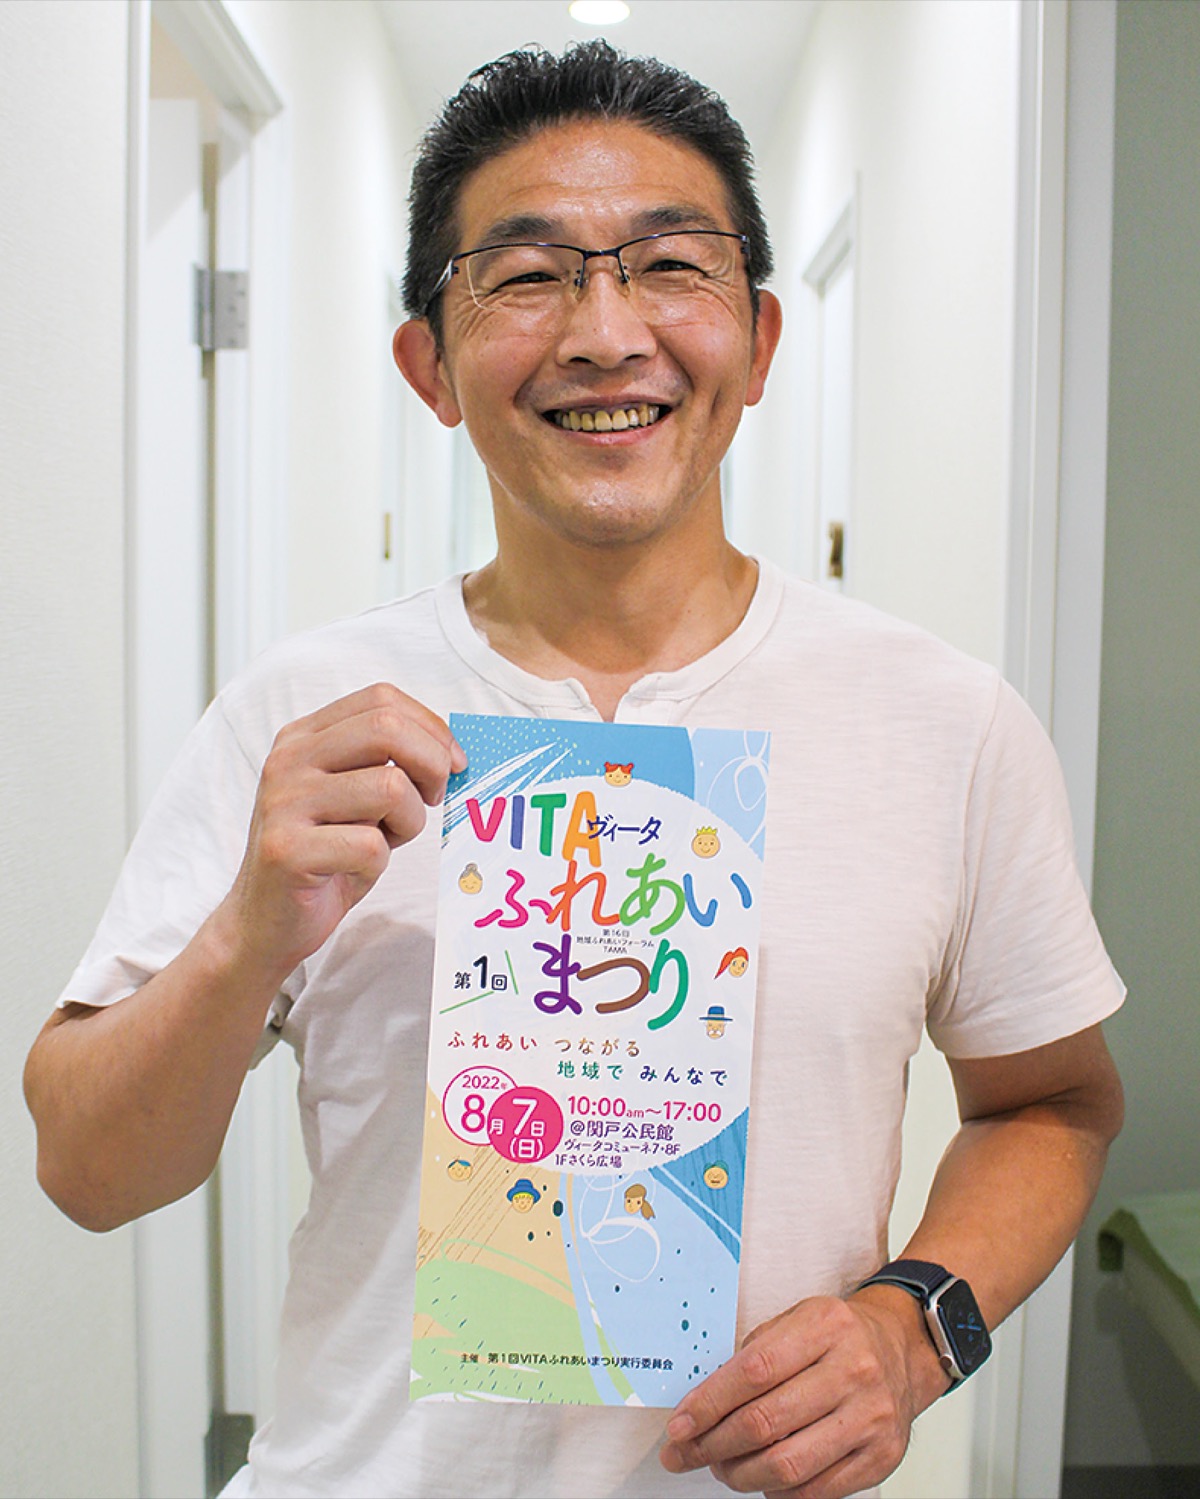 VITAヴィータ
ふれあい
第16回
地域ふれあいフォーラム
TAMA
第1回 まつり
ふれあい つながる
地域で みんなで
2022年
8月7日(日)
10:00am～17:00
@関戸公民館
ヴィータコミューネ7・8F
1Fさくら広場
主催 第1回VITAふれあいまつり実行委員会